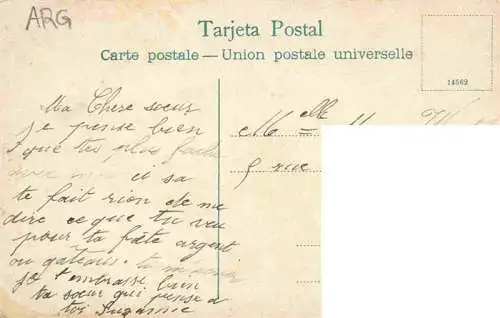 ARG
Tarjeta Postal
Carte postale — Union postale universelle
14562
Ma Chere soeur
je pense bien
que tu plus
avec et sa
te fait rion de me
dire ce que tu veu
pour ta fâte argent
ou gateau. tu
je t'embrasse bien
ta soeur qui pense a
toi Suzanne
Melle M W
9 rue